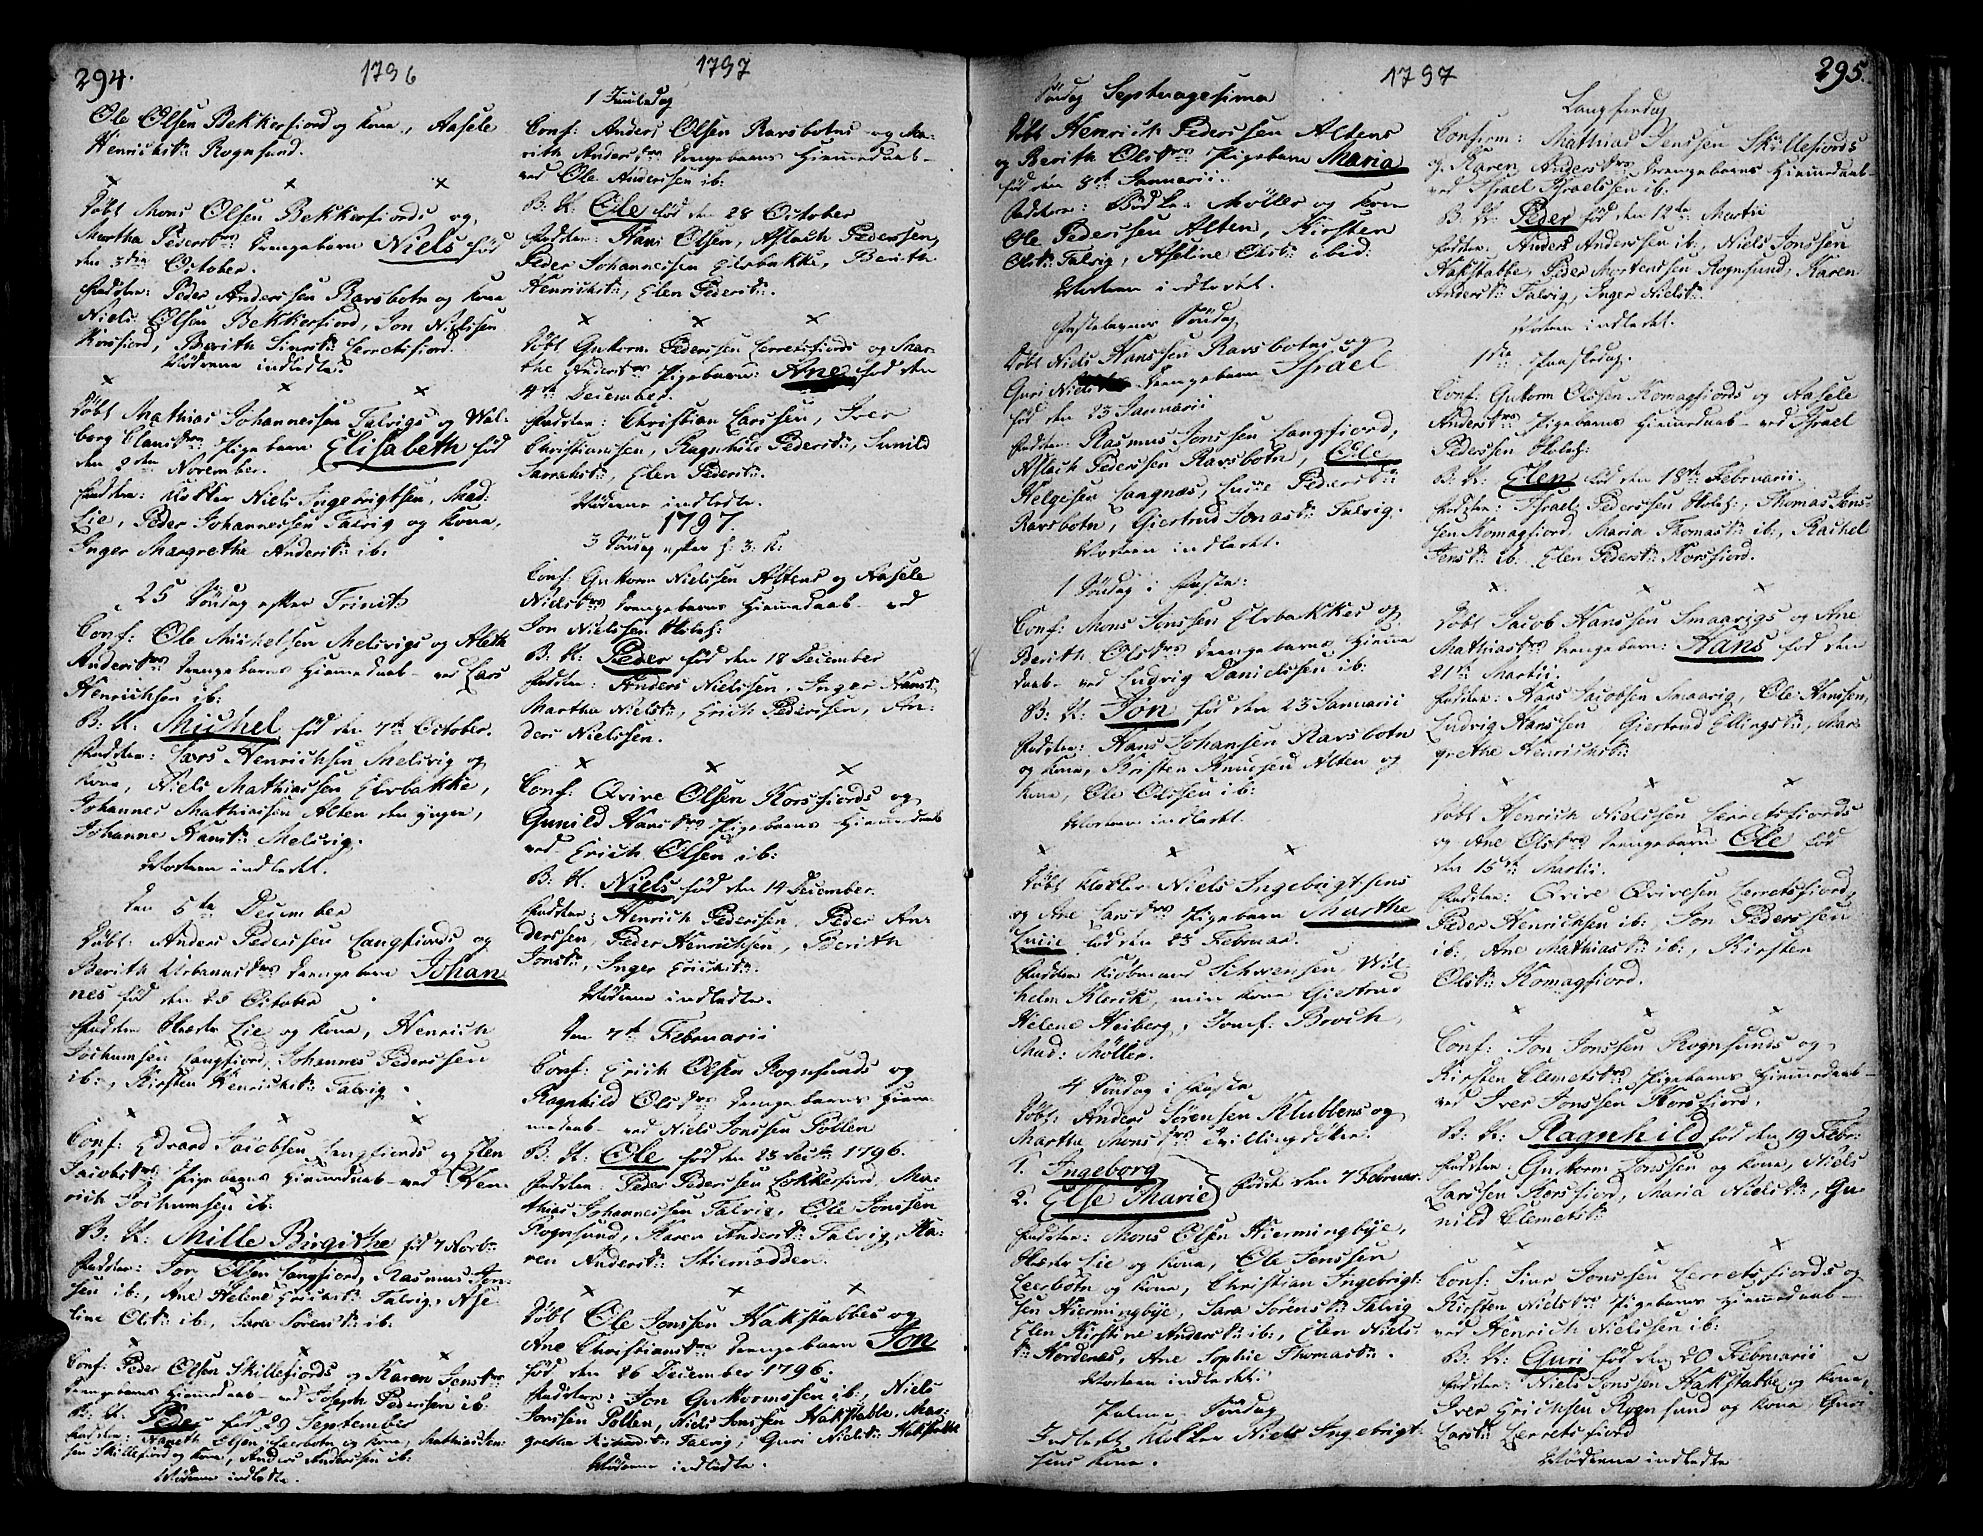 294.
1796
1797
Ole Olsen Bekkerfiord og kona, Aasele
Henrichsdr Rognsund.
Döbt Mons Olsen Bekkerfiords og
Martha Pedersdrs Drengebarn Niels fød
den 3die October.
Faddere: Peder Anderssen Ravsbotn og kona
Niels Olsen Bekkerfiord, Jon Nielssen
Korsfiord, Berith Sinrsdr Lerretsfiord.
Mödrene indledte.
Döbt Mathias Johannessen Talvigs og Wal-
borg Clausdrs Pigebarn Elisabeth fød
den 9den November.
Faddere: Klokker Niels Ingebrigtsen, Mad:
Lie, Peder Johannessen Talvig og kona,
Inger Margrethe Andersdr ib:
25 Söndag efter Trinit:
Conf: Ole Michelsen Melsvigs og Aleth
Andersdrs Drengebarns Hiemmedaab ved Lars
Henrichsen ib:
B: N: Michel fød den 7de October.
Faddere: Lars Henrichsen Melsvig og
kona, Niels Mathiassen Elvebakke,
Johannes Mathiassen Alten den yngre,
Johanne Hansdr Melsvig.
Moderen indledet.
Den 5te December
Döbt: Anders Pederssen Langfiords og
Berith Urbannsdrs Drengebarn Johan
nes fød den 25 October
Faddere Lie og kona, Henrich
Jochumsen Langfiord, Johannes Pederssen
ib:, Kirsten Henrichsdr Talvig.
Conf: Edvard Jacobsen Langfiords og Elen
Jacobsdrs Pigebarns Hiemmedaab ved Hen-
rich Jochumsen ib:
B: N: Mille Birgithe fød 7 Novbr:
Faddere: Jon Olsen Langfiord, Rasmus Jon-
sen ib:, Ane Helene Erichsdr Talvig, Ase-
line Olsdr ib:, Sara Sörensdr ib:
Conf: Peder Olsen Skillefiords og Karen Jensdrs
Drengebarns Hiemmedaab ved Joseph Pederssen ib:
B: N: Peder fød 29 September
Olsen Leerbotn og kona, Mathias Jon-
sen Skillefiord og kona, Anders Anderssen ib:
Mödrene indledte.
1 Juuledag
Conf: Anders Olsen Ravsbotns og Ma-
rith Andersdrs Drengebarns Hiemmedaab
ved Ole Anderssen ib:
B: N: Ole fød den 28 October
Faddere: Hans Olsen, Aslach Pederssen,
Peder Johannessen Elvebakke, Berith
Henrichsdr, Elen Pedersdr.
Döbt Guttorm Pederssen Lerretsfiords og Mar-
the Andersdrs Pigebarn: Ane fød den
4de December.
Faddere: Christian Larssen, Iver
Christianssen, Ragnhild Pedersdr, Gunild
Larsdr, Elen Pedersdr.
Mödrene indledte.
1797
3 Söndag efter H: 3: K:
Conf: Guttorm Nielssen Altens og Aasele
Nielsdrs Drengebarns Hiemmedaab ved
Jon Nielssen
B: N: Peder fød den 18 December
Faddere: Anders Nielssen, Inger Hansdr
Martha Nielsdr, Erich Pederssen, An-
ders Nielssen.
Conf: Qvive Olsen Korsfiords og
Gunild Hansdrs Pigebarns Hiemmedaab
ved Erich Olsen ib:
B: N: Niels fød den 14 December.
Faddere: Henrich Pederssen, Peder An-
derssen, Peder Henrichsen, Berith
Jonsdr, Inger Erichsdr.
Mödrene indledte.
Den 7de Februarii
Conf: Erich Olsen Rognsunds og
Ragnhild Olsdrs Drengebarns Hiem-
medaab ved Niels Jonssen Pollen
B: N: Ole fød den 23 1796.
Faddere: Peder Pederssen Lokkerfiord, Ma-
thias Johannessen Talvig, Ole Jonssen
Rognsund, Karen Andersdr Talvig, Ka-
ren Andersdr Stiernodden.
Döbt Ole Jonssen Hakstabbes og
Ane Christiansdrs Drengebarn Jon
fød den 26 December 1796.
Faddere: Jon Guttormssen ib:, Niels
Jonssen Pollen, Niels Jonssen Hakstabbe, Mar-
grethe Talvig, Guri Nielsdr Hakstabbe
Mödrene indledte.
1797
295.
Söndag Septuagesima
Döbt Henrich Pederssen Altens
og Berith Olsdrs Pigebarn Maria
fød den 8de Januarii.
Faddere: Möller og kona
Ole Pederssen Alten, Kirsten
Olsdr Talvig, Aseline Olsdr ibid:
Moderen indledet.
Fastelavns Söndag
Döbt Niels Hanssen Ravsbotns og
Guri Niels Drengebarn Israel
fød den 23 Januarii
Faddere: Rasmus Jonssen Langfiord,
Aslach Pederssen Ravsbotn, Ole
Helgesen Langnæs, Lucie Pedersdr
Ravsbotn, Giertrud Jonasdr Talvig.
Moderen indledet.
1 Söndag i Faste:
Conf: Mons Jonssen Elvebakkes og
Berith Olsdrs Drengebarns Hiemme
daab ved Ludvig Danielssen ib:
B: N: Jon fød den 23 Januarii
Faddere: Hans Johansen Ravsbotn
og kona, Kristen Knudsen Alten og
kona, Ole Olssen ib:
Moderen indledet.
Döbt Klokker Niels Ingebrigtsens
og Ane Larsdrs Pigebarn Marthe
Lucie fød den 23 Februar.
Faddere Kiöbmand Schwensen, Wil-
helm Klerck, min kona Giertrud
Helene Heiberg, Jomf: Broch,
Mad: Möller.
4 Söndag i Fasten
Döbt: Anders Sörensen Klubbens og
Martha Monsdrs Tvillingdöttre.
1. Ingeborg
2. Else Marie } fødte den 7 Februar.
Faddere: Mons Olsen Hiermingbye,
Lie og kona, Ole Jenssen
Leerbotn og kona, Christian Ingebrigt-
sen Hiermingbye, Sara Sörensdr Talvig
Elen Kirstine Andersdr ib:, Elen Niels-
dr Nordenes, Ane Sophie Thomasdr.
Moderen indledet.
Palme Söndag
Indledt Klokker Niels Ingebrigt-
sens kona.
Langfredag
Confirm: Mathias Jenssen Skillefiords
og Karen Andersdrs Drengebarns Hiemmedaab
ved Israel Israelssen ib:
B: N: Peder fød den 12te Martii
Faddere: Anders Anderssen ib:, Niels Jonssen
Hakstabbe, Peder Mortenssen Rognsund, Karen
Andersdr Talvig, Inger Nielsdr.
Moderen indledet.
1ste Paaskedag.
Conf: Guttorm Olssen Komagfiords og Aasele
Andersdrs Pigebarns Hiemmedaab ved Israel
Pederssen
B: N: Elen fød den 18de Februarii
Faddere: Israel Pederssen, Thomas Jons-
sen Komagfiord, Maria Thomasdr ib:, Rachel
Jensdr ib: Elen Pedersdr Korsfiord.
Döbt Jacob Hanssen Smaavigs og Ane
Mathiasdrs Drengebarn: Hans fød den
21de Martii.
Faddere: Hans Jacobsen Smaavig, Ole Hanssen,
Ludvig Hanssen Giertrud Ellingsdr, Mar-
grethe Henrichsdr
Döbt Henrich Nielssen Lerretsfiords
og Ane Olsdrs Drengebarn Ole fød
den 15de Martii.
Faddere: Qvive Qvivesen Lerretsfiord,
Peder Henrichsen ib:, Jon Pederssen
ib: Ane Mathiasdr ib:, Kirsten
Olsdr Komagfiord.
Conf: Jon Jonssen Rognsunds og
Kirsten Clemetsdrs Pigebarns Hiemmedaab
ved Iver Jonssen Korsfiord.
B: N: Ragnhild fød den 19 Febr:
Faddere: Guttorm Jonssen og kona, Niels
Larssen Korsfiord, Maria Nielsdr, Gu-
nild Clemetsdr
Conf: Sinr Jonssen Lerretsfiords og
Kirsten Nielsdrs Pigebarns Hiemmedaab
ved Henrich Nielssen ib:
B: N: Guri fød den 20 Februarii
Faddere: Niels Jonssen Hakstabbe og kona,
Iver Erichsen Rognsund og kona, Guri
Larsdr Lerretsfiord
Mödrene indledte